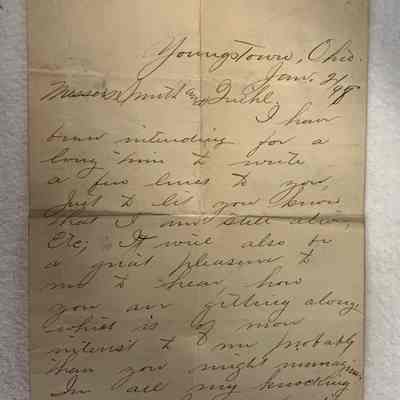 Youngstown, Ohio.
Jan. 21/98
Messers Smith and
I have
been intending for a
long time to write
a few lines to you,
Just to let you know
that I am still alive,
Etc; It will also be
a great pleasure to
me to hear how
you are getting along.
which is of more
interest to me probably
than you might
In all my knocking